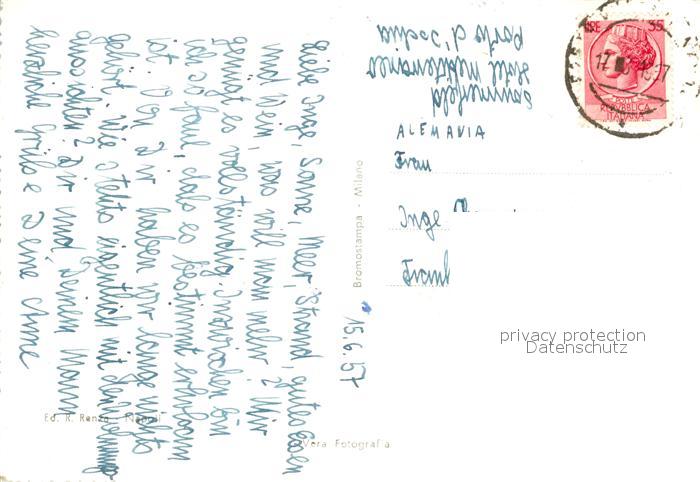 Liebe Inge, Sonne, Meer, Strand, gutes Essen
und Wein, was will man mehr? Mir
genügt es vollständig. Inzwischen bin
ich so faul, daß es bestimmt erholsam
ist. Von Dir haben wir lange nichts
gehört. Wie steht's eigentlich mit der
2 Dir und Deinem Mann
herzliche Grüße Deine Anne
15.6.57
Sommerfeld
Hotel mediterraneo
Porto d'Ischia
ALEMAVIA
Frau
Inge
Frankf
POSTE
REPVBBLICA
ITALIANA
Bromostampa - Milano
Ed. R. Renza - Napoli
Vera Fotografia
privacy protection
Datenschutz